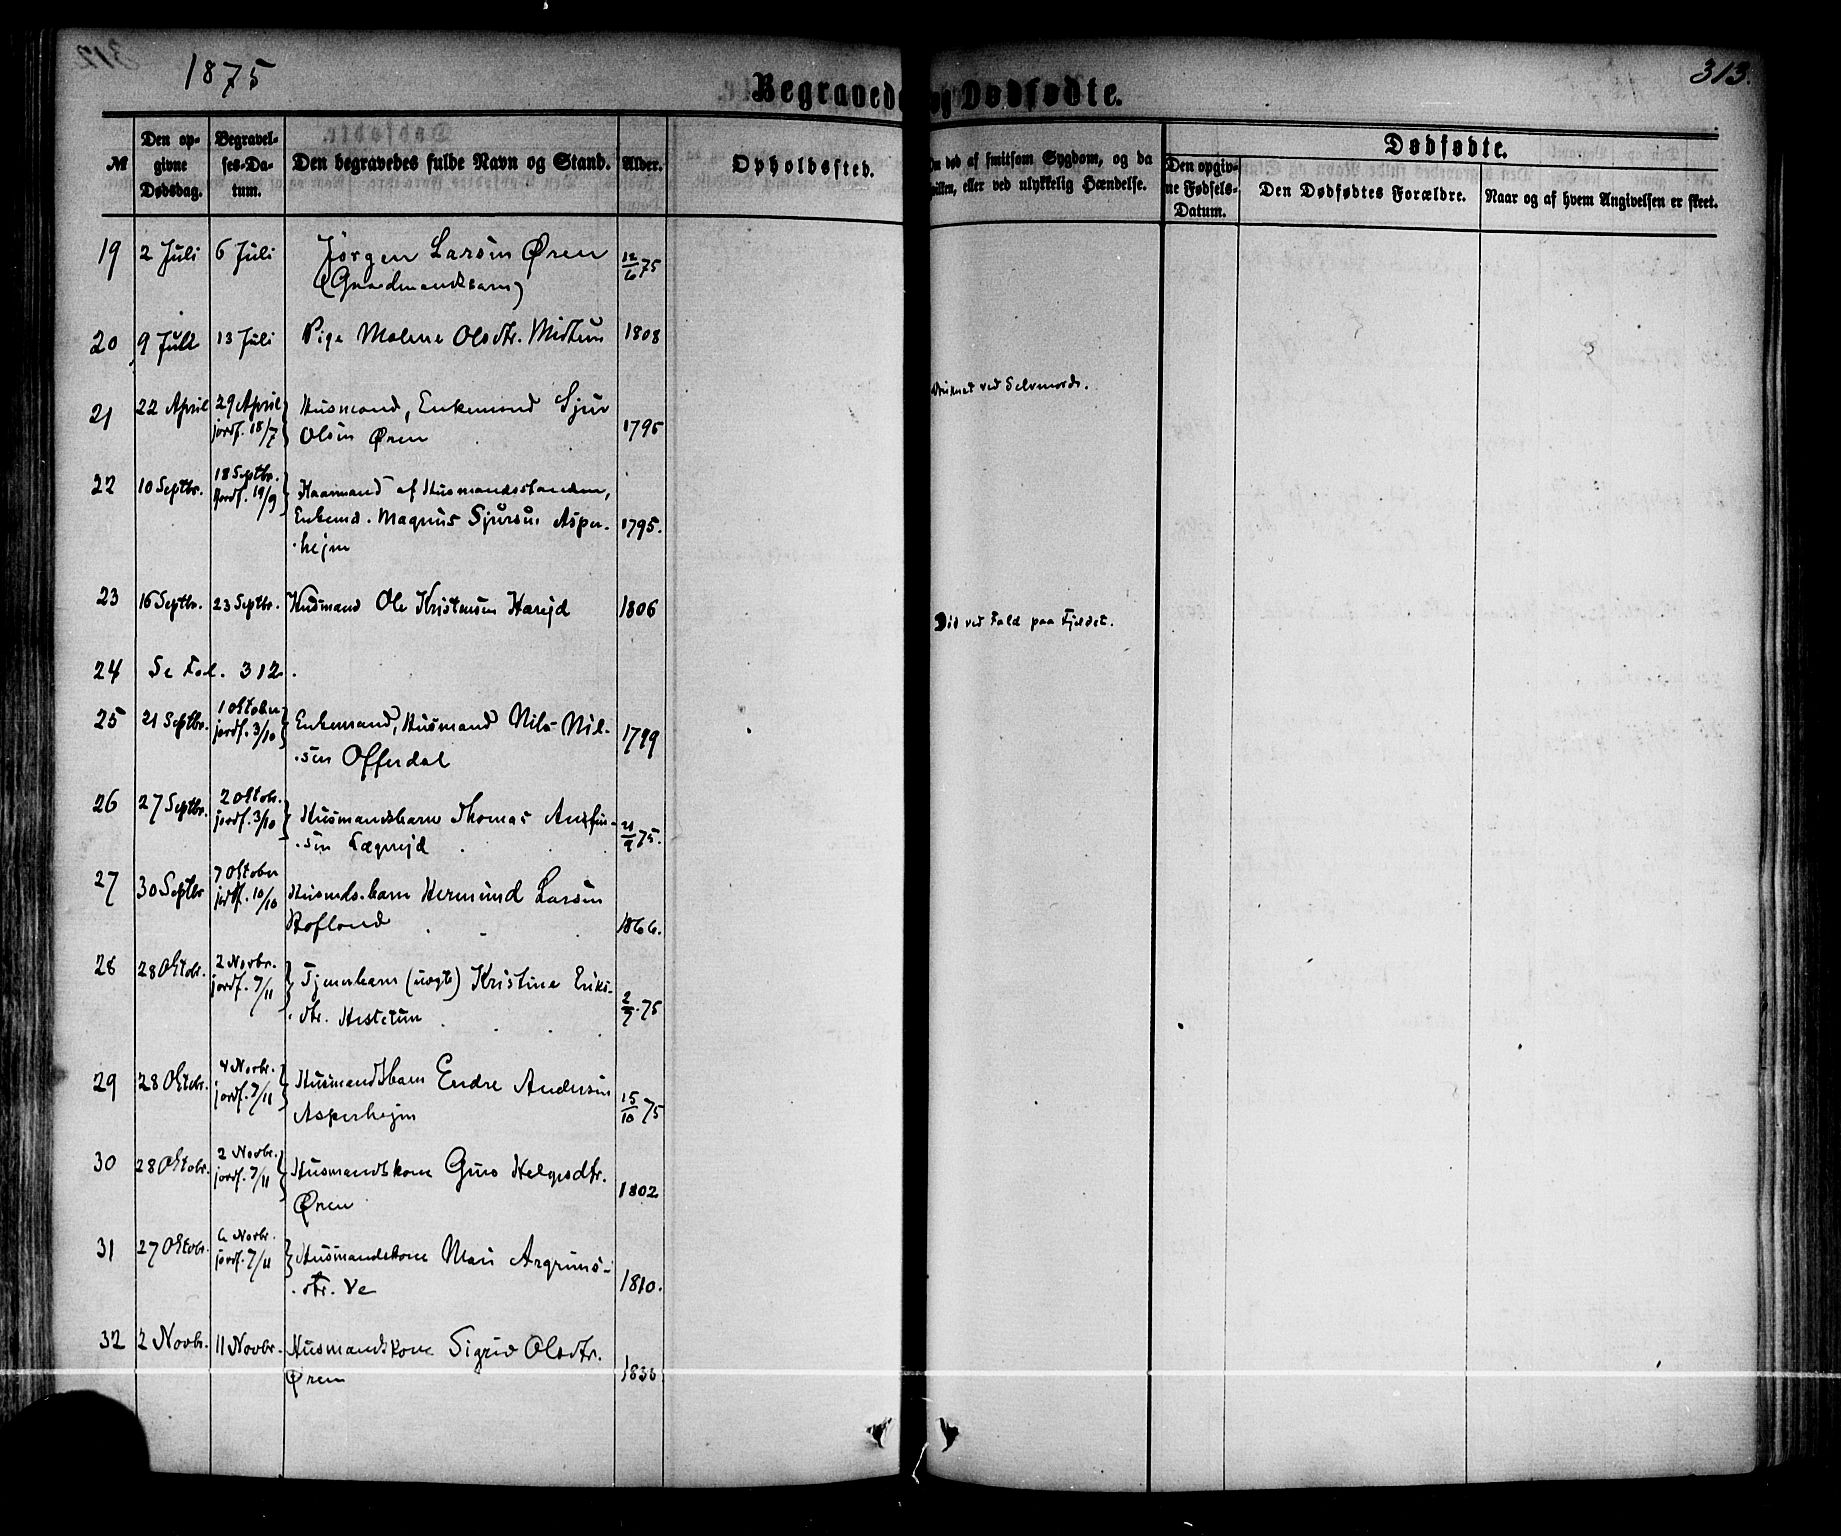 1875
313.
Begravede og Dødfødte.
№
Den op-
givne
Dødsdag.
Begravel-
ses-Da-
tum.
Den begravedes fulde Navn og Stand.
Alder.
Opholdssted.
Om død af smitsom Sygdom, og da
hvilken, eller ved ulykkelig Hændelse.
Dødfødte.
Den opgiv-
ne Fødsels-
Datum.
Den Dødfødtes Forældre.
Naar og af hvem Angivelsen er skeet.
19 2 Juli 6 Juli Jørgen Larsen Øren 12/6 75
(Gaardmandsbarn)
20 9 Juli 13 Juli Pige Malene Olsdtr. Midtun 1808
21 22 April 29 April Husmand, Enkemand Sjur
jordf. 18/7 Olsen Øren 1795
Druknet ved Selvmord.
22 10 Septbr. 18 Septbr.
Jordf. 19/9 Kaarmand af Husmandsstanden,
Enkemd. Magnus Sjursen Asper- 1795.
hejm
23 16 Septbr. 23 Septbr. Husmand Ole Kristensen Harejd 1806
Død ved Fald paa Fjeldet.
24 Se Fol. 312.
25 21 Septbr. 1 Oktober
jordf. 3/10 Enkemand, Husmand Nils Nil-
sen Offerdal 1799
26 27 Septbr. 2 Oktobr.
jordf. 3/10 Husmandsbarn Thomas Andfin-
sen Fægrejd 21/9 75.
27 30 Septbr 7 Oktober
jordf. 10/10 Husmds.barn Hermund Larsen
Hofland 1866.
28 28 Oktobr. 2 Novbr.
jordf. 7/11 Tjenerbarn (uægte) Kristine Eriks-
dtr. Hestetun 2/7 75
29 28 Oktobr. 4 Novbr.
jordf. 7/11 Husmandsbarn Endre Andersen
Asperhejm 15/10 75
30 28 Oktobr. 2 Novbr.
jordf. 7/11 Husmandskone Guro Helgesdtr.
Øren 1802
31 27 Oktobr. 6 Novbr.
jordf. 7/11 Husmandskone Mari Argrims-
dtr. Ve 1810.
32 2 Novbr. 11 Novbr. Husmandskone Sigrid Olsdtr.
Øren 1836